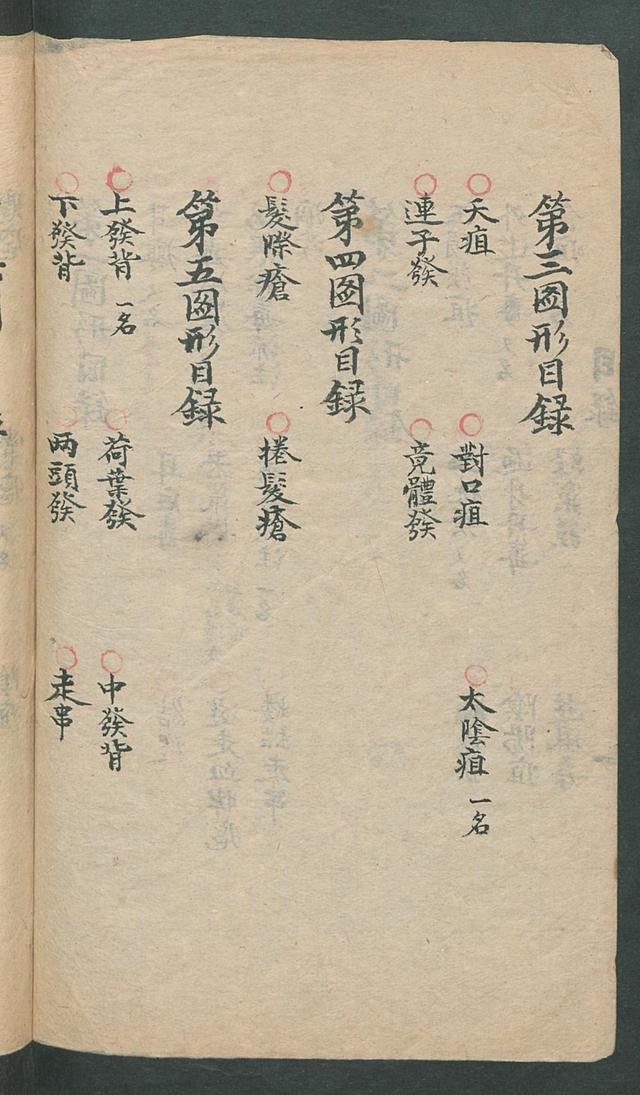 第三圖形目録
○夭疽　○對口疽　○太陰疽 一名
○連子發　○竟體發
第四圖形目録
○髮際瘡　○捲髮瘡
第五圖形目録
○上發背 一名　○荷葉發　○中發背
○下發背　○両頭發　○走串